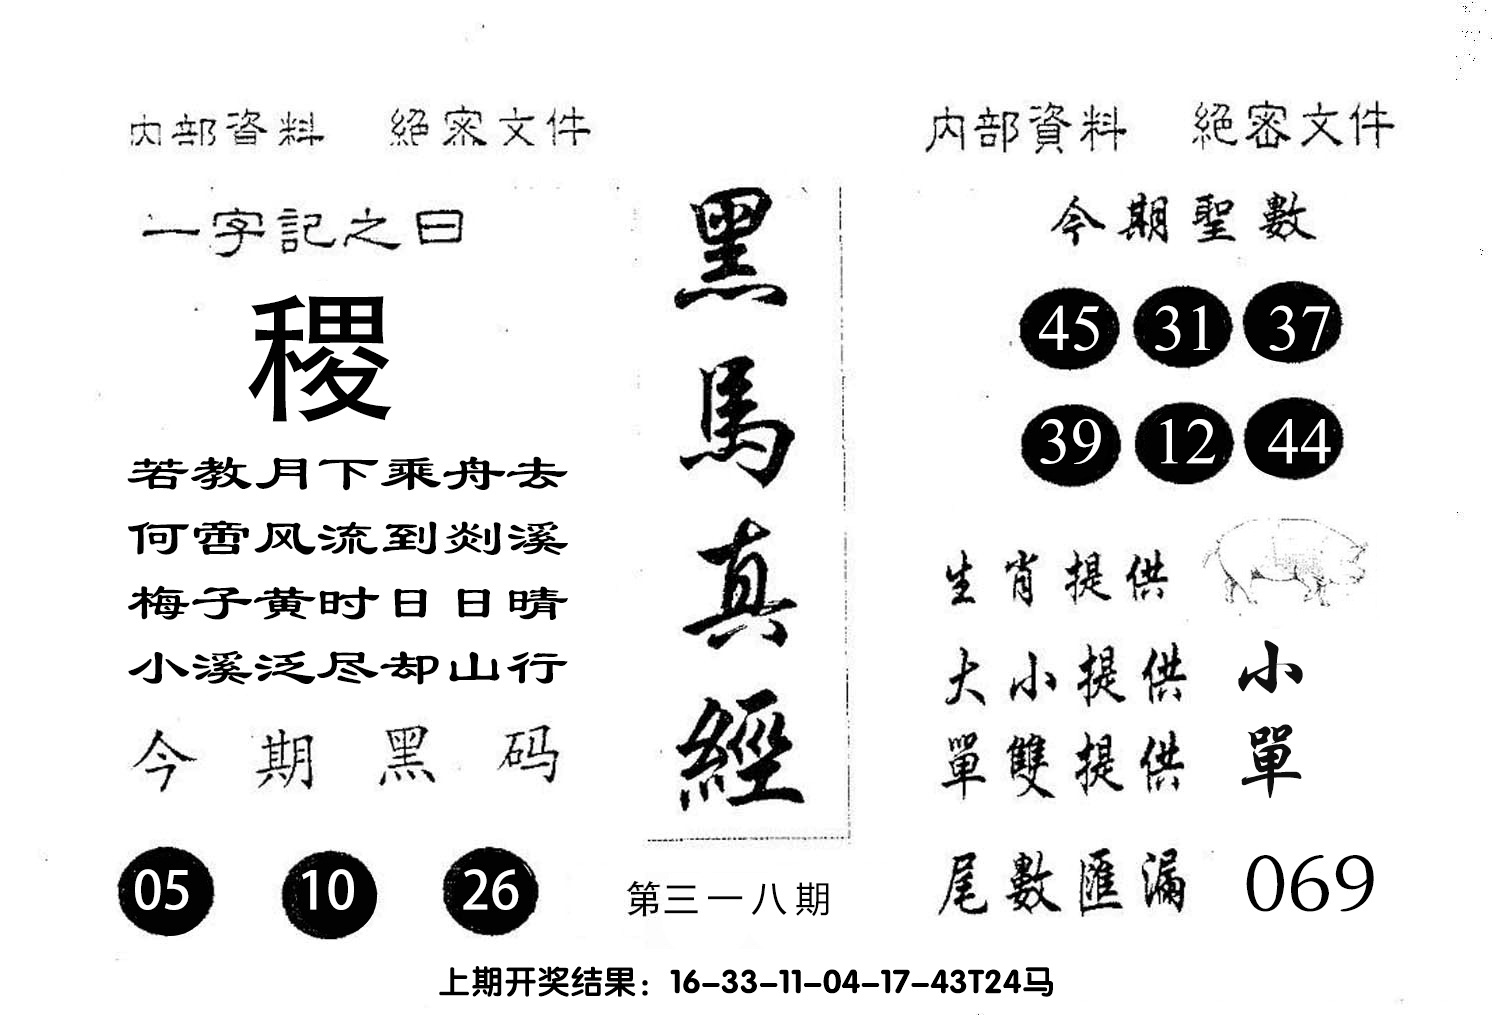 内部資料 絕密文件
一字記之曰
稷
若教月下乘舟去
何啻风流到剡溪
梅子黄时日日晴
小溪泛尽却山行
今期黑码
05 10 26
黑馬真經
第三一八期
内部資料 絕密文件
今期聖數
45 31 37
39 12 44
生肖提供
大小提供 小
單雙提供 單
尾數匯漏 069
上期开奖结果：16-33-11-04-17-43T24马